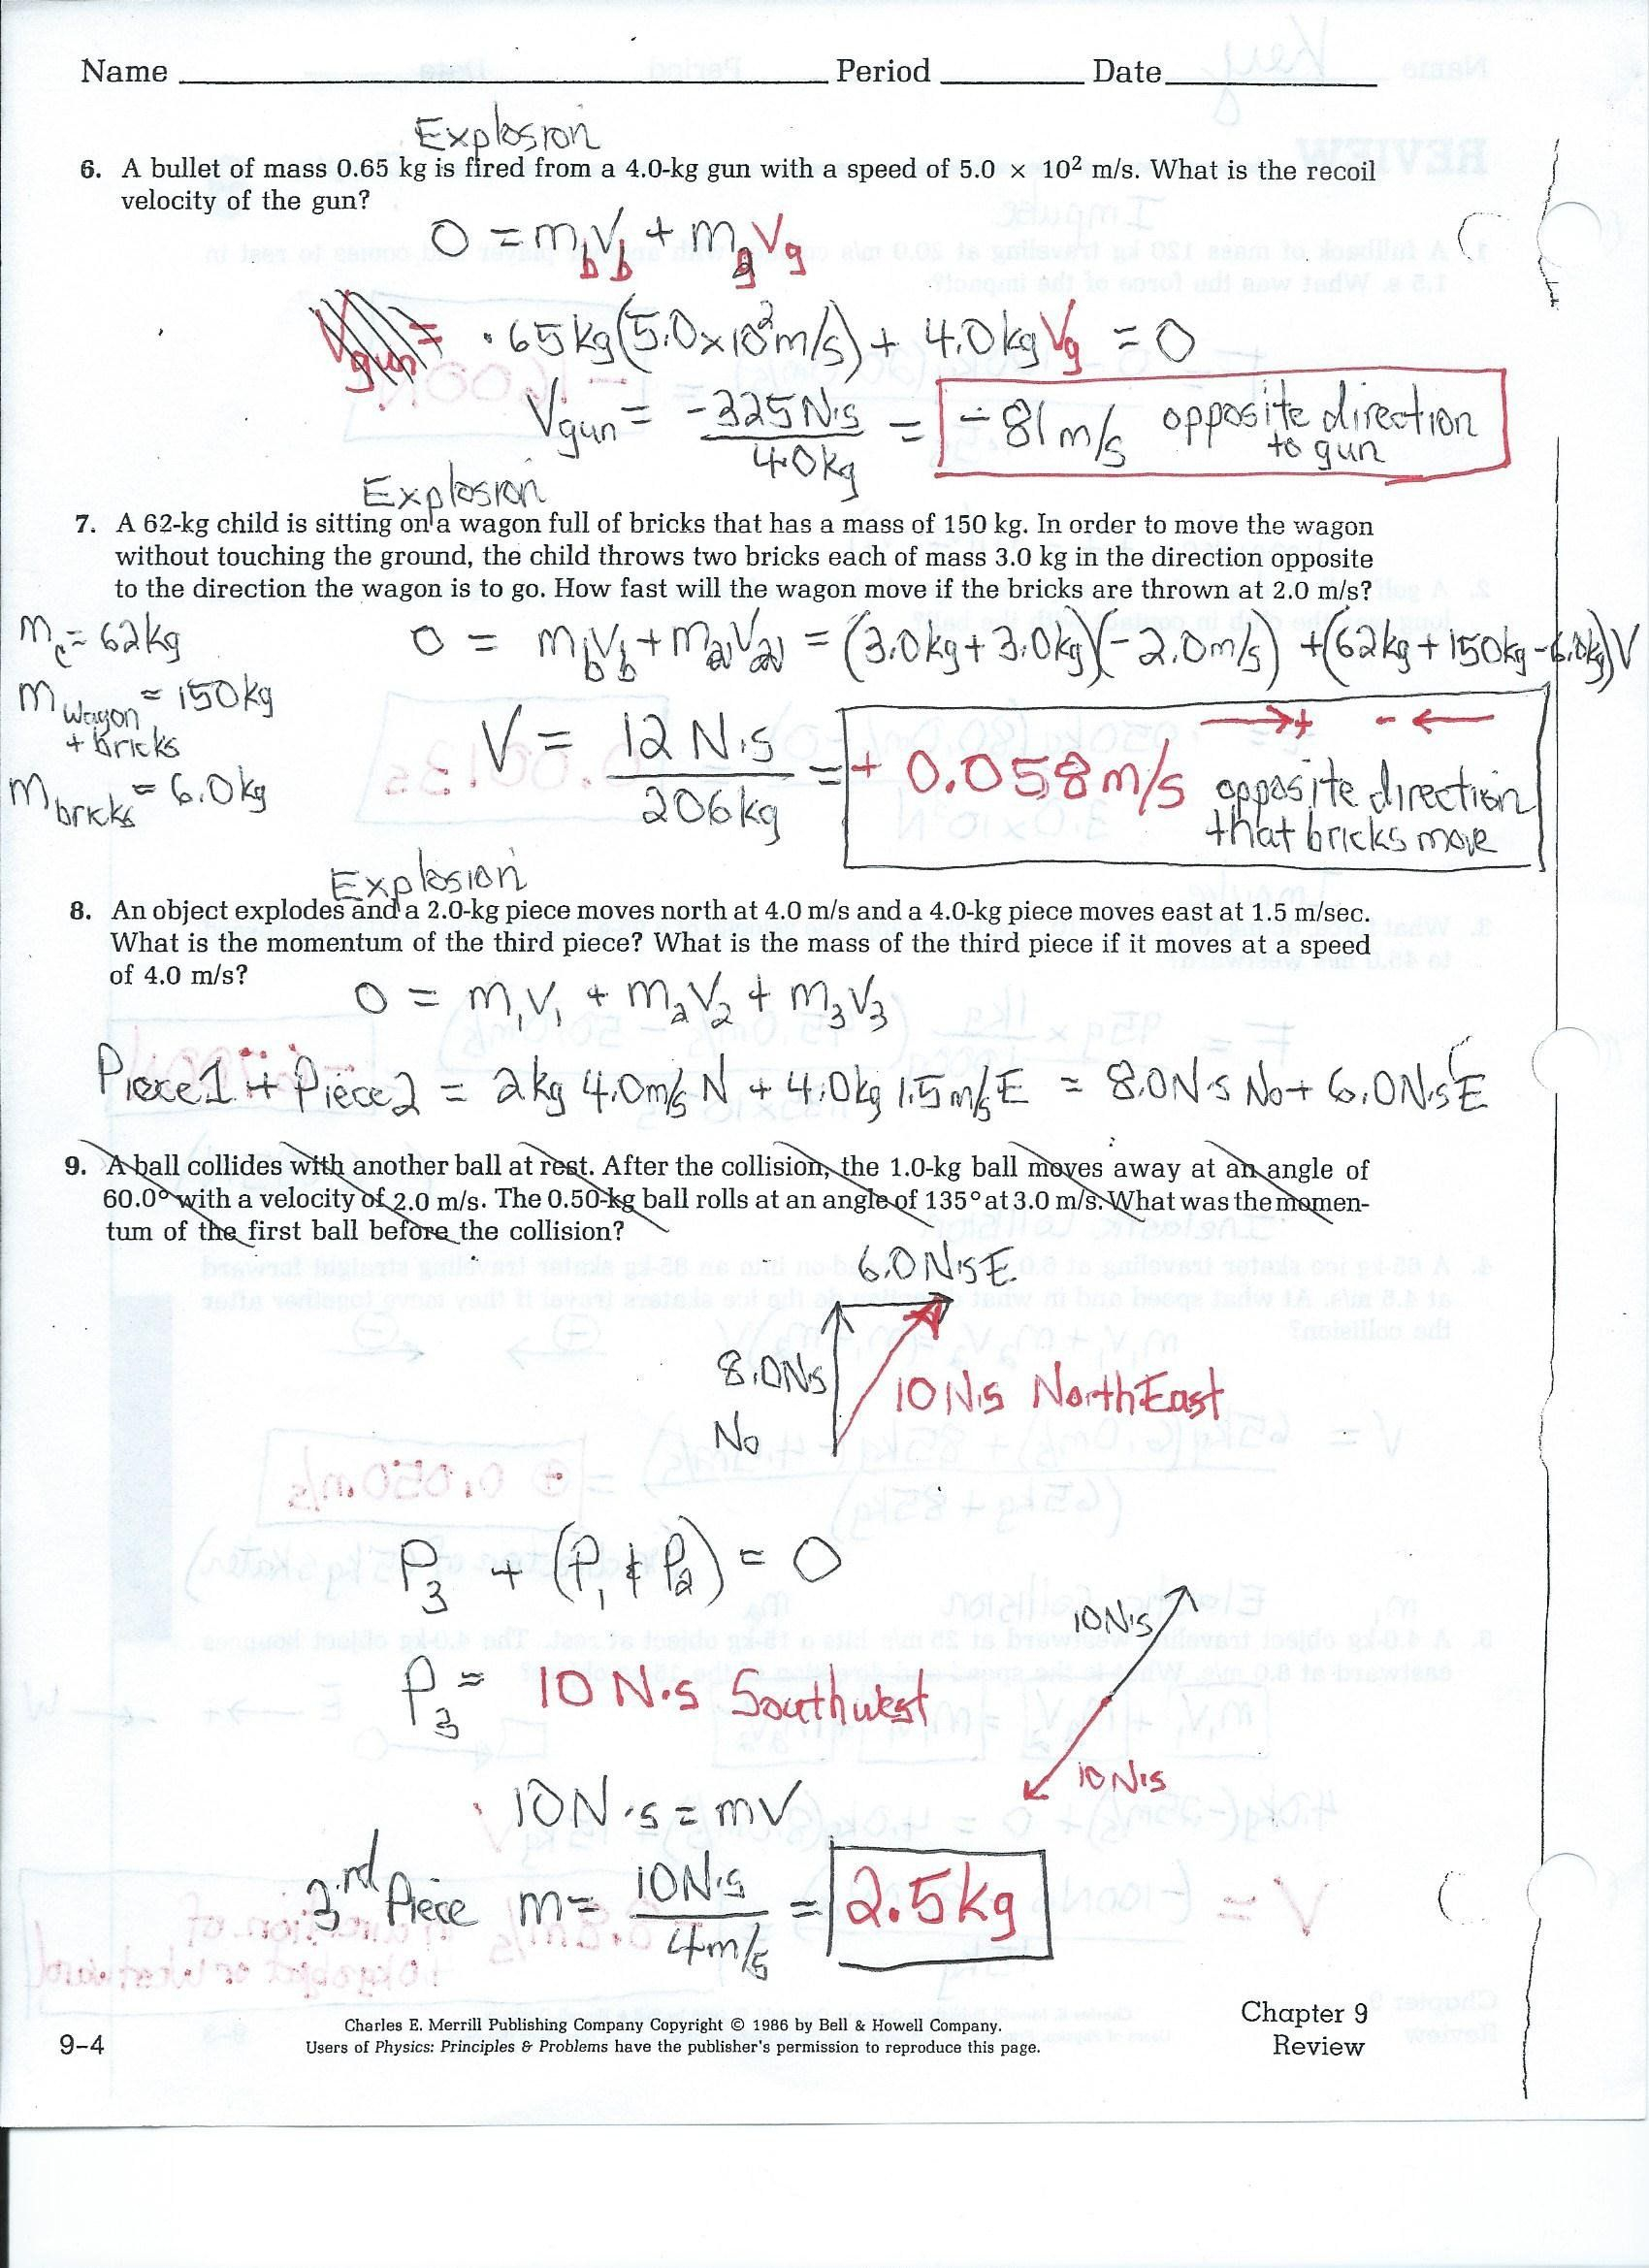 Name Period Date
Explosion
6. A bullet of mass 0.65 kg is fired from a 4.0-kg gun with a speed of 5.0 × 10² m/s. What is the recoil
velocity of the gun?
0 = m_b V_b + m_g V_g
.65kg(5.0x10²m/s) + 4.0kg Vg = 0
Vgun = -325N·s / 4.0kg = -81m/s opposite direction to gun
Explosion
7. A 62-kg child is sitting on a wagon full of bricks that has a mass of 150 kg. In order to move the wagon
without touching the ground, the child throws two bricks each of mass 3.0 kg in the direction opposite
to the direction the wagon is to go. How fast will the wagon move if the bricks are thrown at 2.0 m/s?
m_c = 62kg
0 = m_b V_b + m_2 V_2 = (3.0kg+3.0kg)(-2.0m/s) + (62kg+150kg-6.0kg)V
m wagon + bricks = 150kg
V = 12 N·s / 206kg = + 0.058m/s opposite direction that bricks move
→+ - ←
m bricks = 6.0kg
Explosion
8. An object explodes and a 2.0-kg piece moves north at 4.0 m/s and a 4.0-kg piece moves east at 1.5 m/sec.
What is the momentum of the third piece? What is the mass of the third piece if it moves at a speed
of 4.0 m/s?
0 = m₁V₁ + m₂V₂ + m₃V₃
Piece1 + Piece2 = 2kg 4.0m/s N + 4.0kg 1.5m/s E = 8.0N·s No + 6.0N·s E
9. A ball collides with another ball at rest. After the collision, the 1.0-kg ball moves away at an angle of
60.0° with a velocity of 2.0 m/s. The 0.50-kg ball rolls at an angle of 135° at 3.0 m/s. What was the momen-
tum of the first ball before the collision?
6.0N·s E
8.0N·s
No
10N·s NorthEast
P₃ + (P₁ & P₂) = 0
10N·s
P₃ = 10 N·s Southwest
10N·s
10N·s = mV
3rd Piece m = 10N·s / 4m/s = 2.5kg
Chapter 9
Review
9–4
Charles E. Merrill Publishing Company Copyright © 1986 by Bell & Howell Company.
Users of Physics: Principles & Problems have the publisher's permission to reproduce this page.